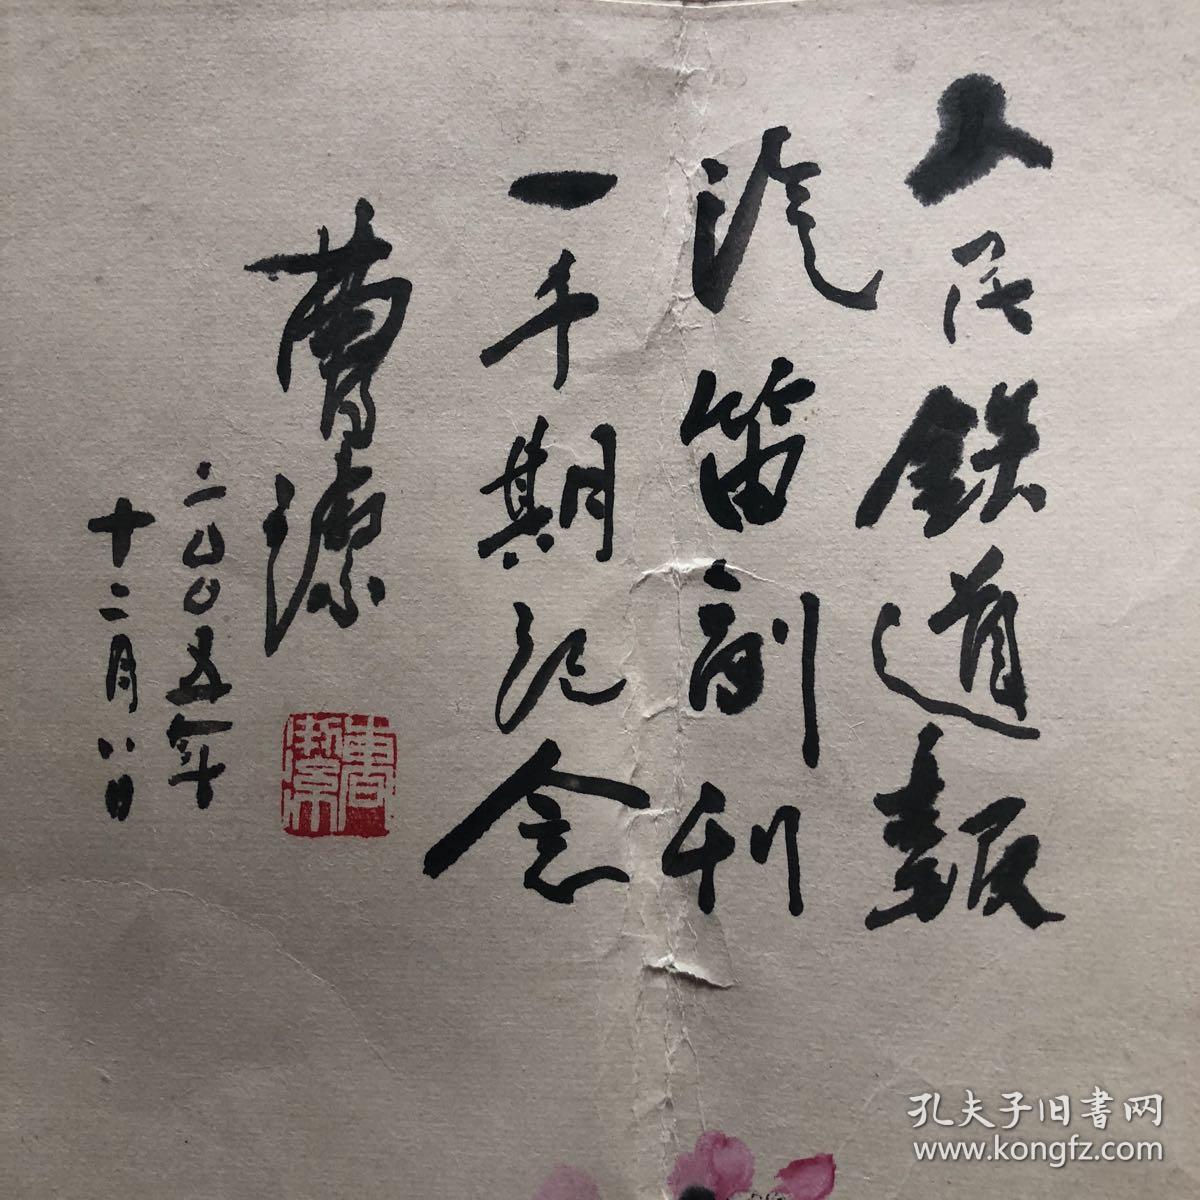 人民鉄道報
汽笛副刊
一千期纪念
曹
二〇〇五年
十二月八日
孔夫子旧書网
www.kongfz.com